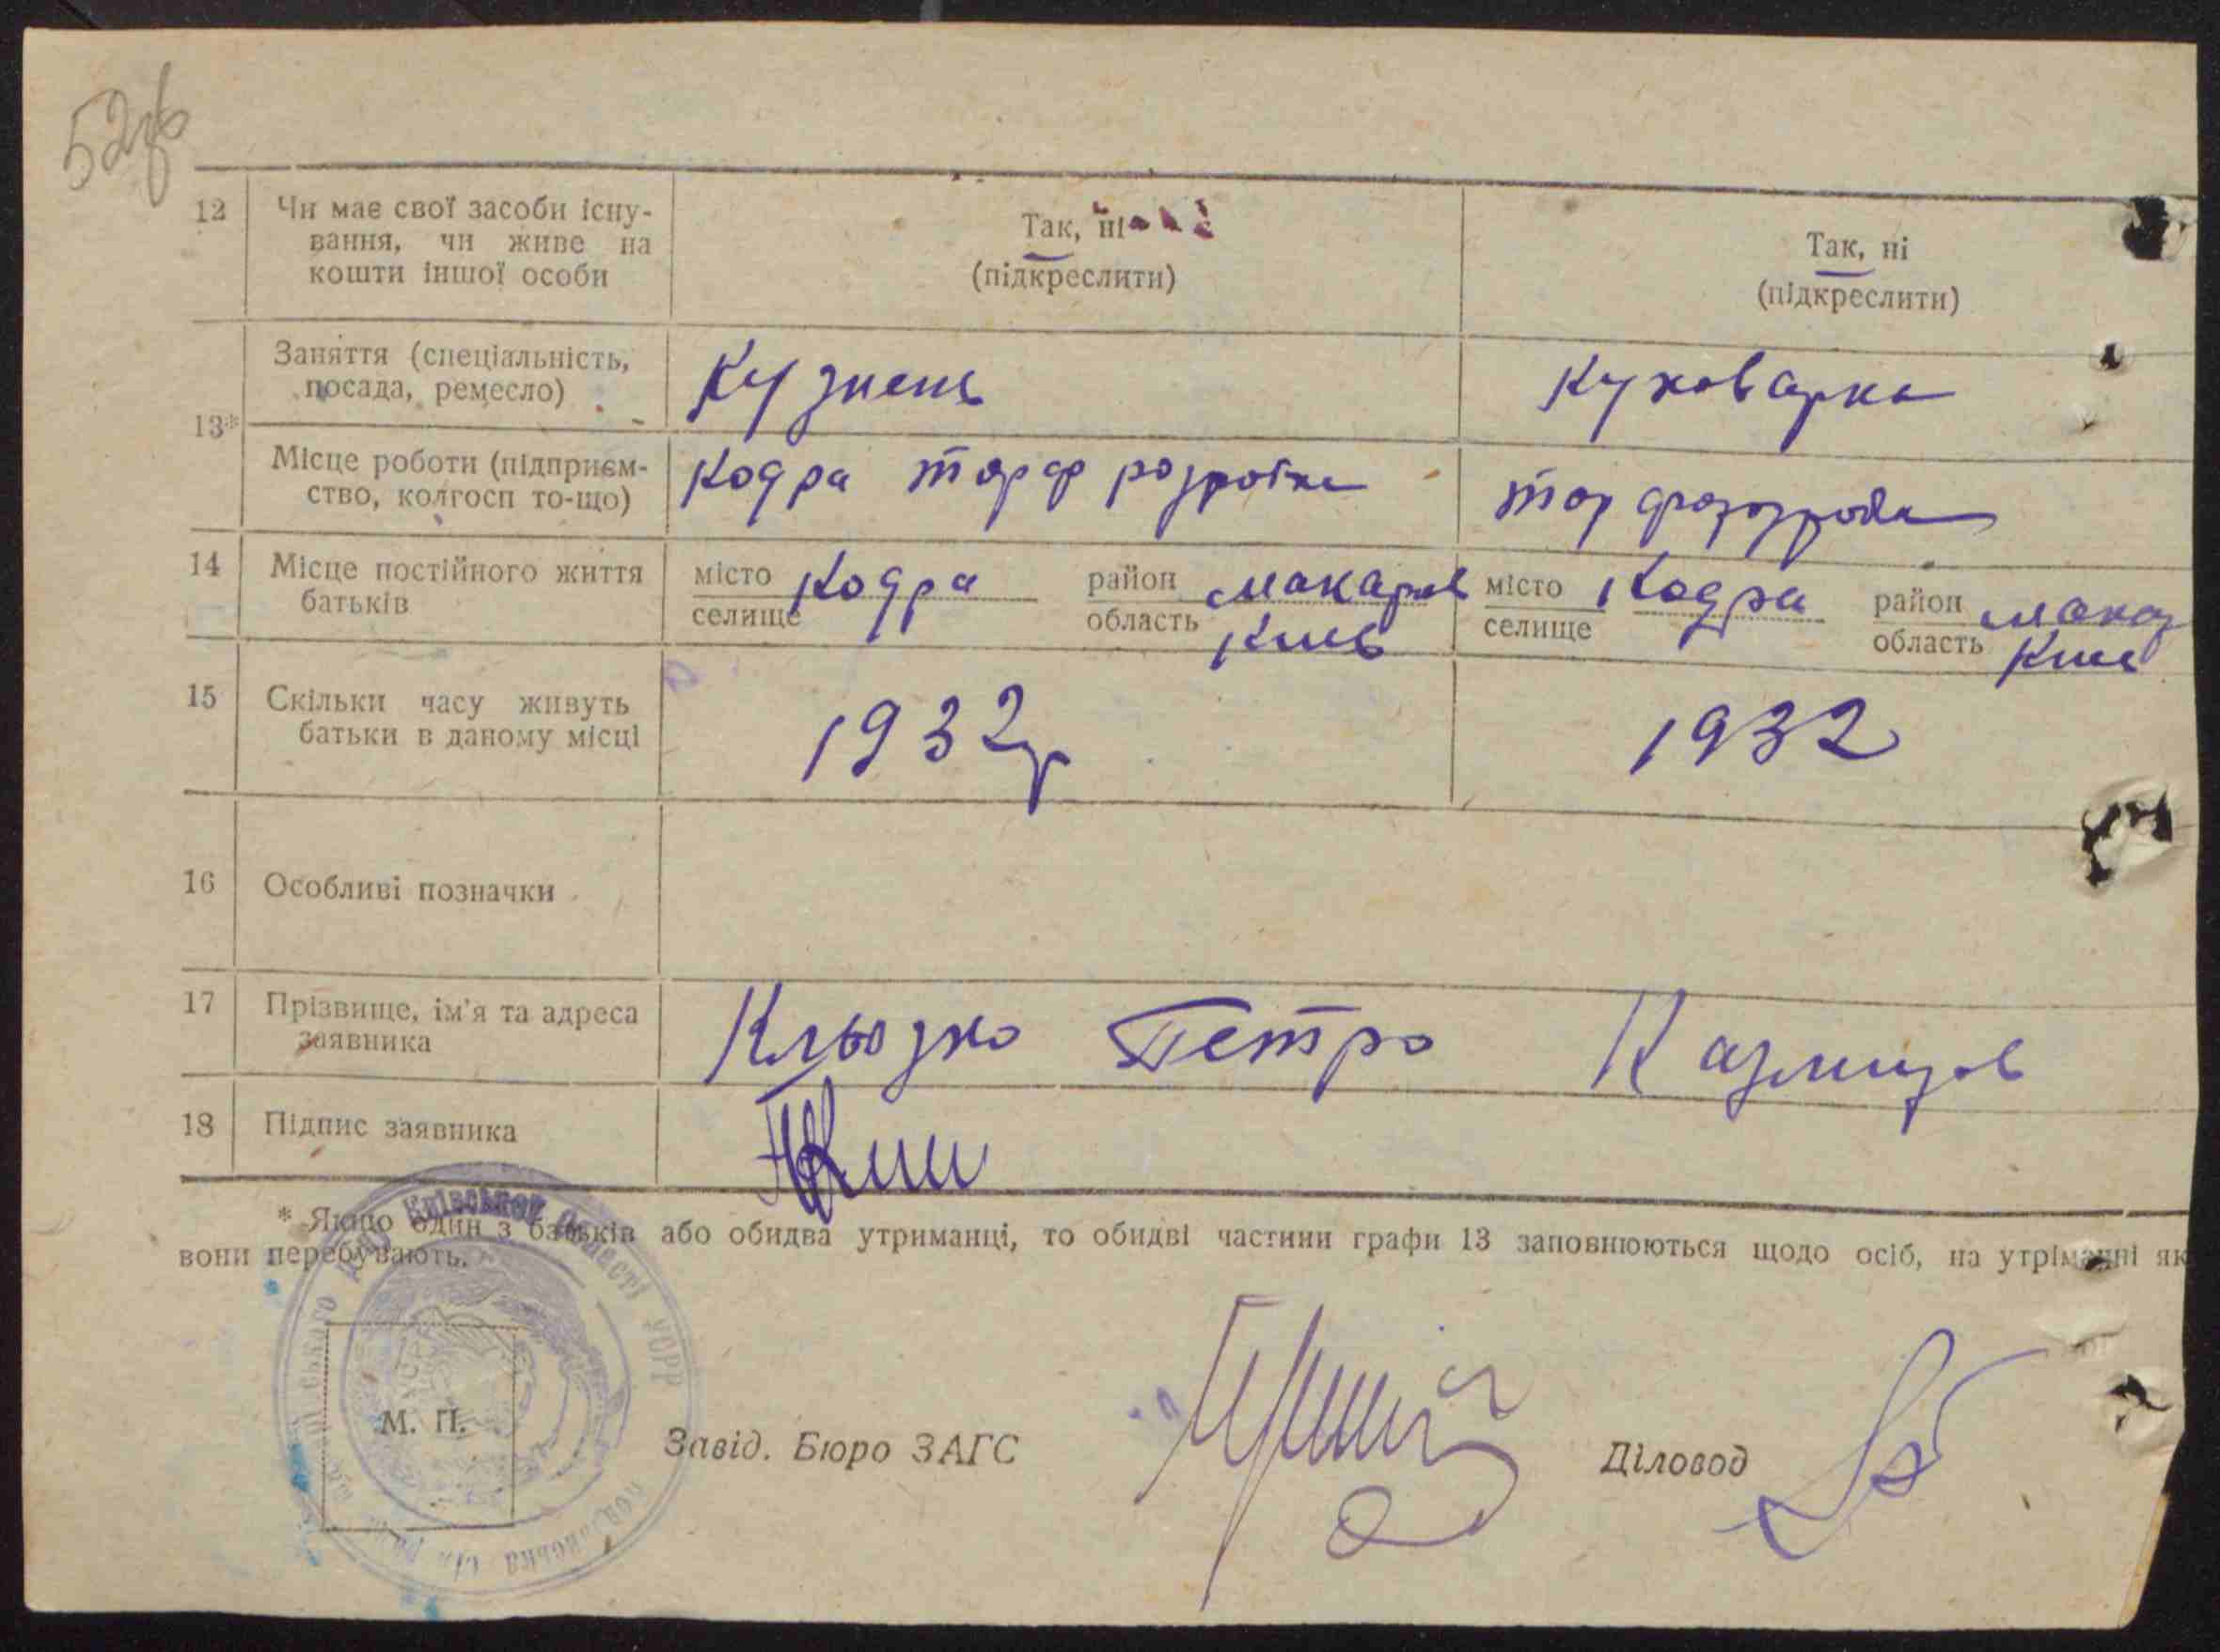 52зв
12 Чи має свої засоби існу-
вання, чи живе на
кошти іншої особи
Так, ні
(підкреслити)
Так, ні
(підкреслити)
13*
Заняття (спеціальність,
посада, ремесло)
Кузнець
Куховарка
Місце роботи (підприєм-
ство, колгосп то-що)
Кодра торф розробка
14 Місце постійного життя
батьків
місто Кодра район Макарів
селище область Київ
місто Кодра район Макар
селище область Київ
15 Скільки часу живуть
батьки в даному місці
1932р
1932
16 Особливі позначки
17 Прізвище, ім'я та адреса
заявника
Кльозко Петро Казмиров
18 Підпис заявника
* Якщо один з батьків або обидва утриманці, то обидві частини графи 13 заповнюються щодо осіб, на утріманні як
вони перебувають.
Київської області УСРР
М. П.
Завід. Бюро ЗАГС
Діловод